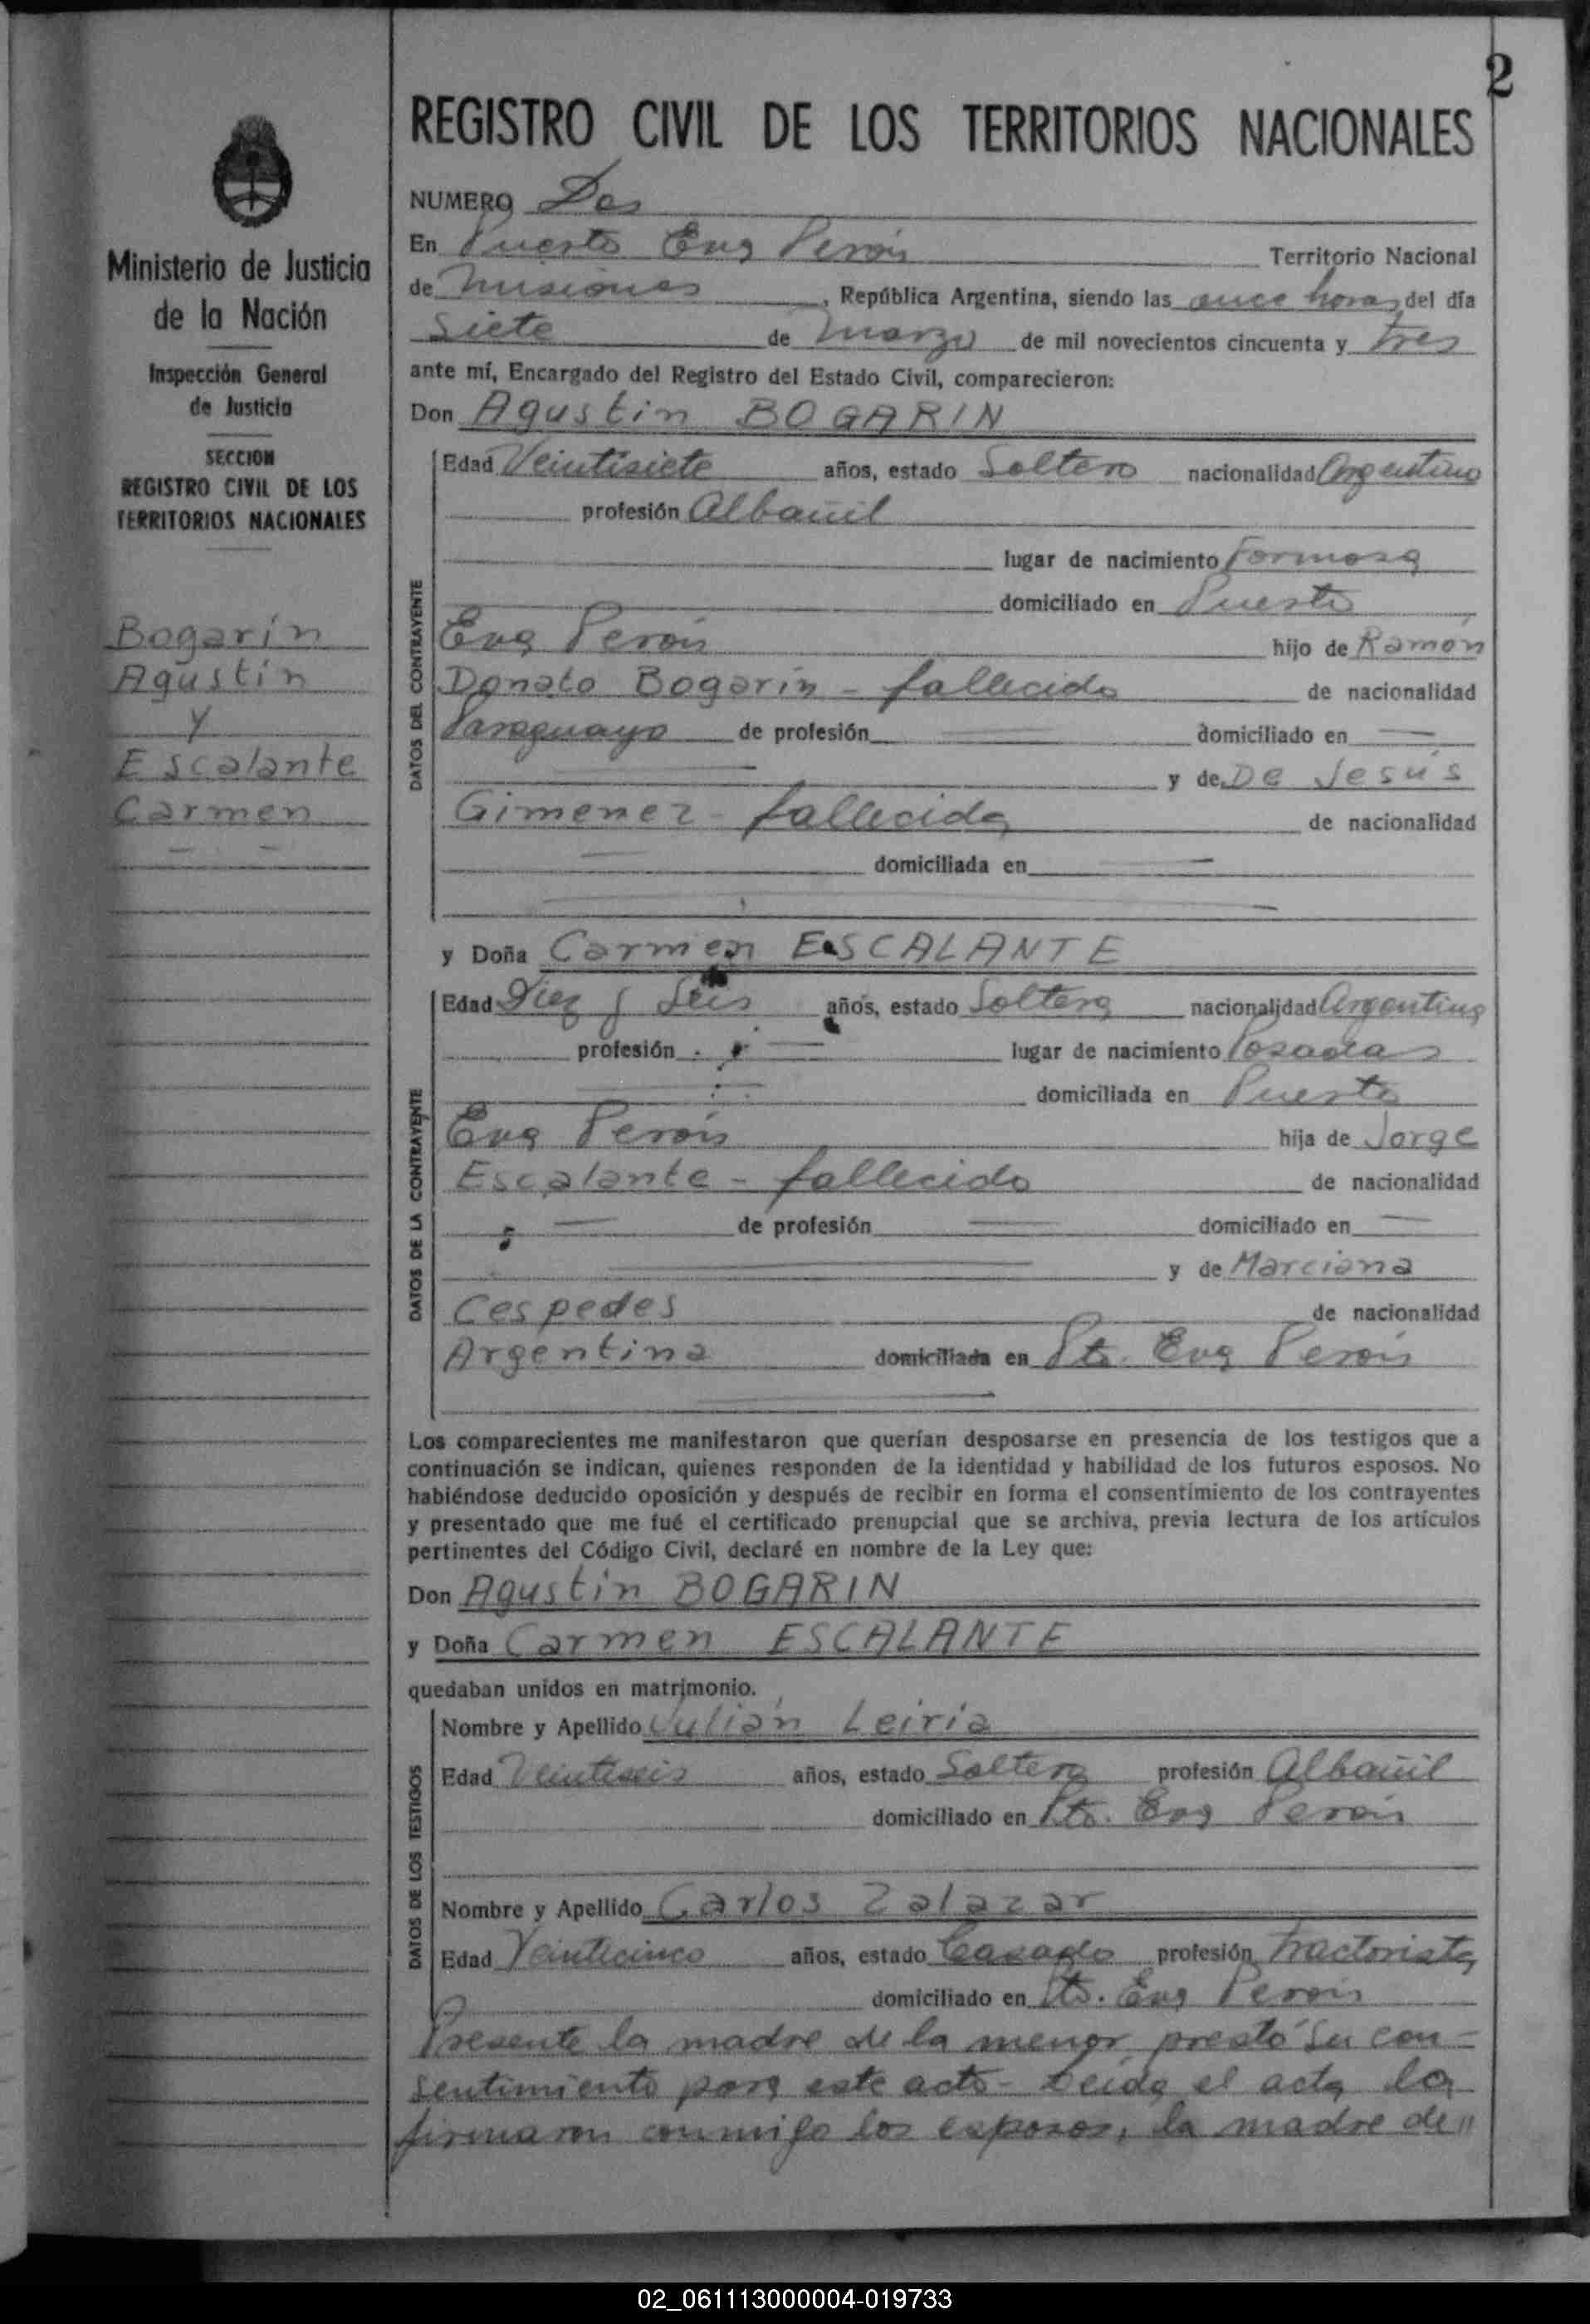 2
REGISTRO CIVIL DE LOS TERRITORIOS NACIONALES
Ministerio de Justicia
de la Nación
Inspección General
de Justicia
SECCION
REGISTRO CIVIL DE LOS
TERRITORIOS NACIONALES
Bogarín
Agustín
y
Escalante
Carmen
NUMERO Dos
En Puerto Eva Perón Territorio Nacional
de Misiones, República Argentina, siendo las once horas del día
Siete de Marzo de mil novecientos cincuenta y tres
ante mí, Encargado del Registro del Estado Civil, comparecieron:
Don Agustin BOGARIN
DATOS DEL CONTRAYENTE
Edad Veintisiete años, estado Soltero nacionalidad Argentino
profesión Albañil
lugar de nacimiento Formosa
domiciliado en Puerto
Eva Perón hijo de Ramón
Donato Bogarín - fallecido de nacionalidad
Paraguaya de profesión domiciliado en
y de De Jesús
Gimenez - fallecida de nacionalidad
domiciliada en
y Doña Carmen ESCALANTE
DATOS DE LA CONTRAYENTE
Edad Diez y Seis años, estado Soltera nacionalidad Argentina
profesión lugar de nacimiento Posadas
domiciliada en Puerto
Eva Perón hija de Jorge
Escalante - fallecido de nacionalidad
de profesión domiciliado en
y de Marciana
Cespedes de nacionalidad
Argentina domiciliada en Pto. Eva Perón
Los comparecientes me manifestaron que querían desposarse en presencia de los testigos que a
continuación se indican, quienes responden de la identidad y habilidad de los futuros esposos. No
habiéndose deducido oposición y después de recibir en forma el consentimiento de los contrayentes
y presentado que me fué el certificado prenupcial que se archiva, previa lectura de los artículos
pertinentes del Código Civil, declaré en nombre de la Ley que:
Don Agustín BOGARIN
y Doña Carmen ESCALANTE
quedaban unidos en matrimonio.
DATOS DE LOS TESTIGOS
Nombre y Apellido Julián Leiria
Edad Veintiseis años, estado Soltero profesión Albañil
domiciliado en Pto. Eva Perón
Nombre y Apellido Carlos Zalazar
Edad Veinticinco años, estado Casado profesión Tractorista
domiciliado en Pto. Eva Perón
Presente la madre de la menor prestó su con-
sentimiento para este acto - Leída el acta la
firmaron conmigo los esposos, la madre de"
02_061113000004-019733